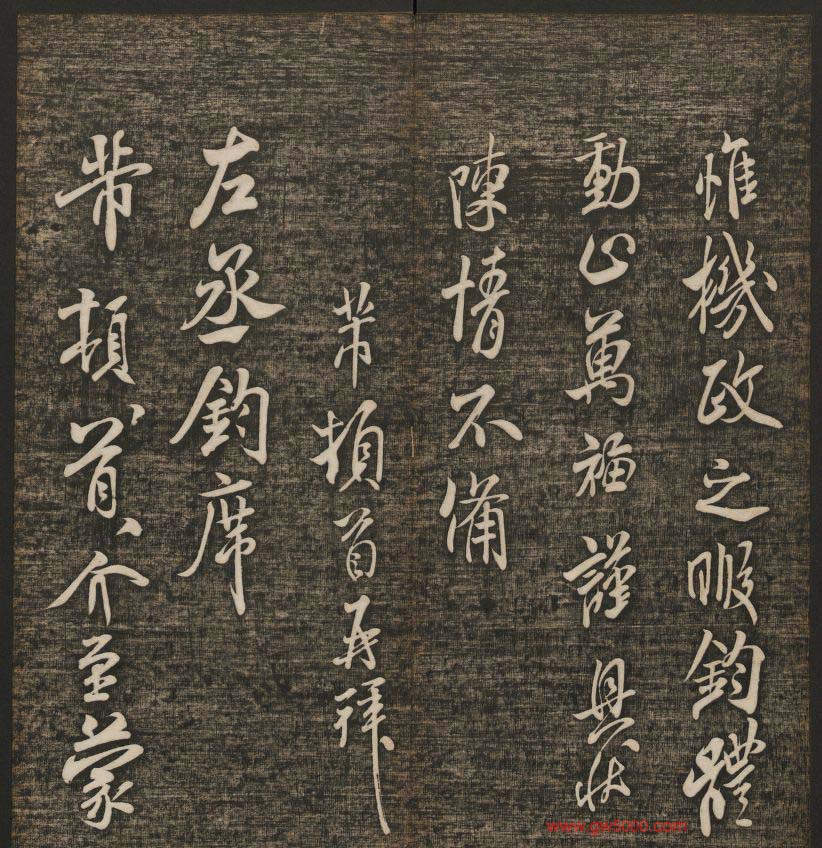 惟機政之暇鈞體
動止萬福謹具狀
陳情不備
芾頓首再拜
左丞鈞席
芾頓首介至蒙
www.gx5000.com